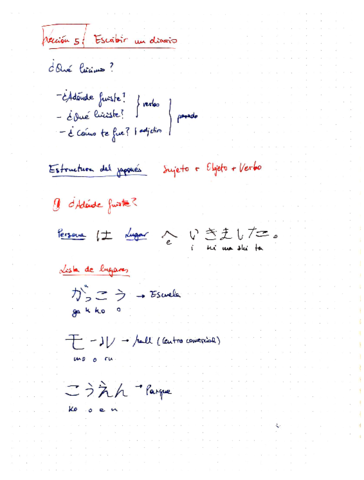 Lección 5 / Escribir un diario
¿Qué hicimos?
- ¿Adónde fuiste? } verbo
- ¿Qué hiciste? } pasado
- ¿Cómo te fue? | adjetivo
Estructura del japonés Sujeto + Objeto + Verbo
¿Adónde fuiste?
Persona は Lugar へ いきました。
e i ki ma shi ta
Lista de lugares
がっこう → Escuela
ga k ko o
モール → Mall (Centro comercial)
mo o ru
こうえん → Parque
ko o e n